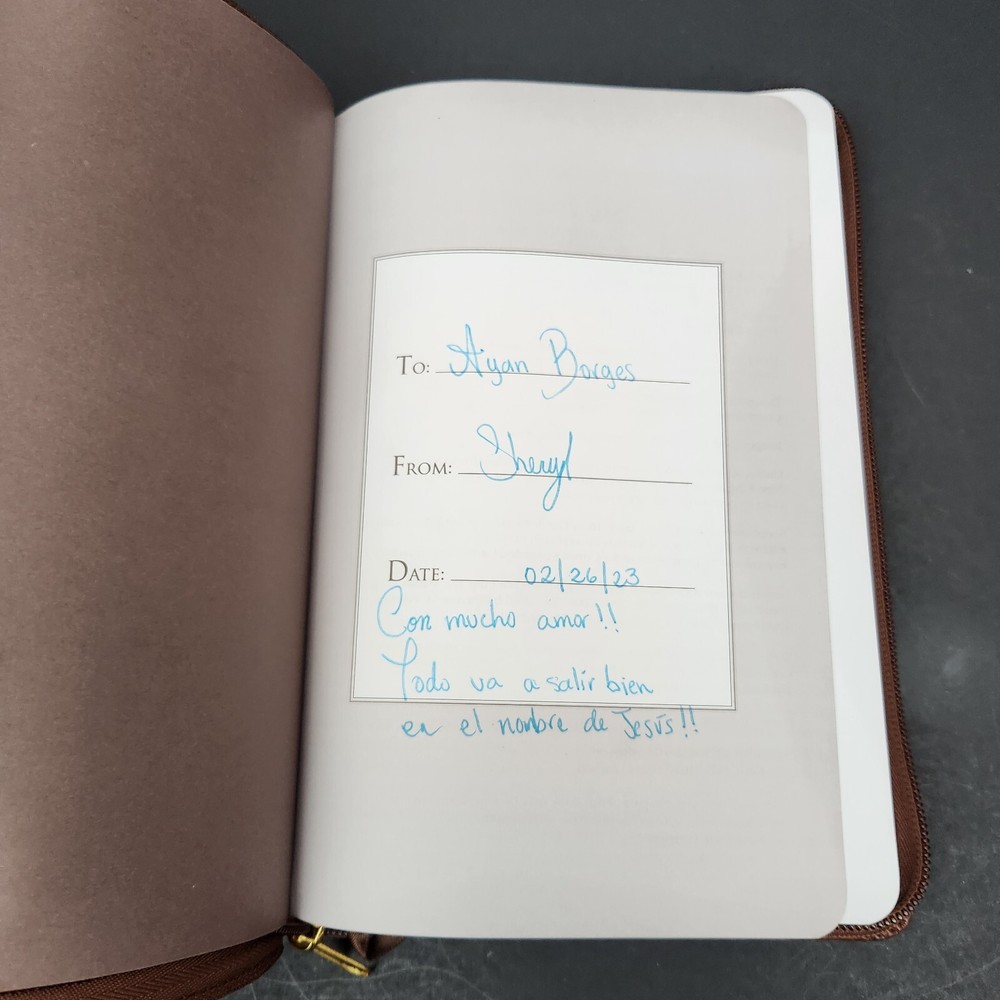 To: Ayan Borges
From: Sheryl
Date: 02/26/23
Con mucho amor!!
Todo va a salir bien
en el nombre de Jesús!!